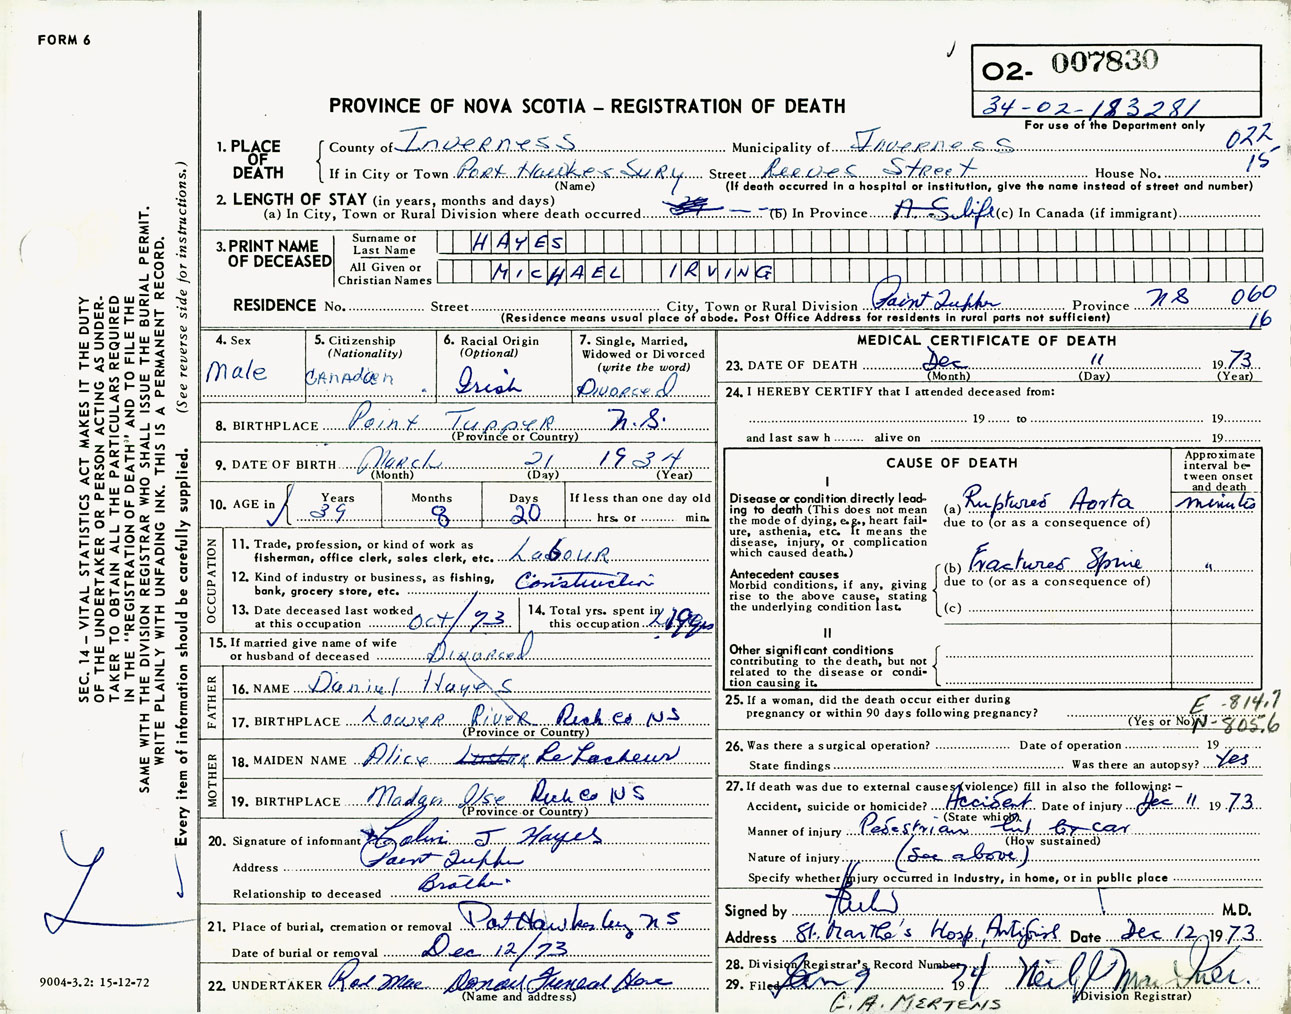 FORM 6
O2- 007830
34-02-183281
For use of the Department only
PROVINCE OF NOVA SCOTIA – REGISTRATION OF DEATH
022
15
1. PLACE OF DEATH
County of Inverness Municipality of Inverness
If in City or Town Port HawkesBury Street Reeves Street House No.
(Name) (If death occurred in a hospital or institution, give the name instead of street and number)
2. LENGTH OF STAY (in years, months and days)
(a) In City, Town or Rural Division where death occurred (b) In Province life (c) In Canada (if immigrant)
3. PRINT NAME OF DECEASED
Surname or Last Name HAYES
All Given or Christian Names MICHAEL IRVING
RESIDENCE No. Street City, Town or Rural Division Point Tupper Province NS 060
(Residence means usual place of abode. Post Office Address for residents in rural parts not sufficient) 16
4. Sex Male
5. Citizenship (Nationality) Canadian
6. Racial Origin (Optional) Irish
7. Single, Married, Widowed or Divorced (write the word) Divorced
8. BIRTHPLACE Point Tupper N.S.
(Province or Country)
9. DATE OF BIRTH March 21 1934
(Month) (Day) (Year)
10. AGE in Years 39 Months 8 Days 20 If less than one day old
hrs. or min.
OCCUPATION
11. Trade, profession, or kind of work as fisherman, office clerk, sales clerk, etc. Labour
12. Kind of industry or business, as fishing, bank, grocery store, etc. Construction
13. Date deceased last worked at this occupation Oct/73
14. Total yrs. spent in this occupation 19 yrs
15. If married give name of wife or husband of deceased Divorced
FATHER
16. NAME Daniel Hayes
17. BIRTHPLACE Lower River Rich Co NS
(Province or Country)
MOTHER
18. MAIDEN NAME Alice LeLacheur
19. BIRTHPLACE Madgen Ilse Rich Co NS
(Province or Country)
20. Signature of informant J Hayes
Address Point Tupper
Relationship to deceased Brother
21. Place of burial, cremation or removal Port Hawkesbury NS
Date of burial or removal Dec 12/73
22. UNDERTAKER Rod Mac Donald Funeral Home
(Name and address)
MEDICAL CERTIFICATE OF DEATH
23. DATE OF DEATH Dec 11 1973
(Month) (Day) (Year)
24. I HEREBY CERTIFY that I attended deceased from:
19 to 19
and last saw h alive on 19
CAUSE OF DEATH
Approximate interval between onset and death
I
Disease or condition directly leading to death (This does not mean the mode of dying, e.g., heart failure, asthenia, etc. It means the disease, injury, or complication which caused death.)
(a) Ruptured Aorta minutes
due to (or as a consequence of)
Antecedent causes
Morbid conditions, if any, giving rise to the above cause, stating the underlying condition last.
(b) Fractured Spine "
due to (or as a consequence of)
(c)
II
Other significant conditions
contributing to the death, but not related to the disease or condition causing it.
25. If a woman, did the death occur either during pregnancy or within 90 days following pregnancy?
(Yes or No)
E-814.7
N-805.6
26. Was there a surgical operation? Date of operation 19
State findings Was there an autopsy? Yes
27. If death was due to external causes (violence) fill in also the following: –
Accident, suicide or homicide? Accident Date of injury Dec 11 1973
(State which)
Manner of injury Pedestrian hit by car
(How sustained)
Nature of injury (See above)
Specify whether injury occurred in Industry, in home, or in public place
Signed by M.D.
Address St. Martha's Hosp, Antigonish Date Dec 12 1973
28. Division Registrar's Record Number
29. Filed Jan 9 1974
(Division Registrar)
G. A. MERTENS
SEC. 14 – VITAL STATISTICS ACT MAKES IT THE DUTY
OF THE UNDERTAKER OR PERSON ACTING AS UNDER-
TAKER TO OBTAIN ALL THE PARTICULARS REQUIRED
IN THE "REGISTRATION OF DEATH" AND TO FILE THE
SAME WITH THE DIVISION REGISTRAR WHO SHALL ISSUE THE BURIAL PERMIT.
WRITE PLAINLY WITH UNFADING INK. THIS IS A PERMANENT RECORD.
Every item of information should be carefully supplied. (See reverse side for instructions.)
9004-3.2: 15-12-72